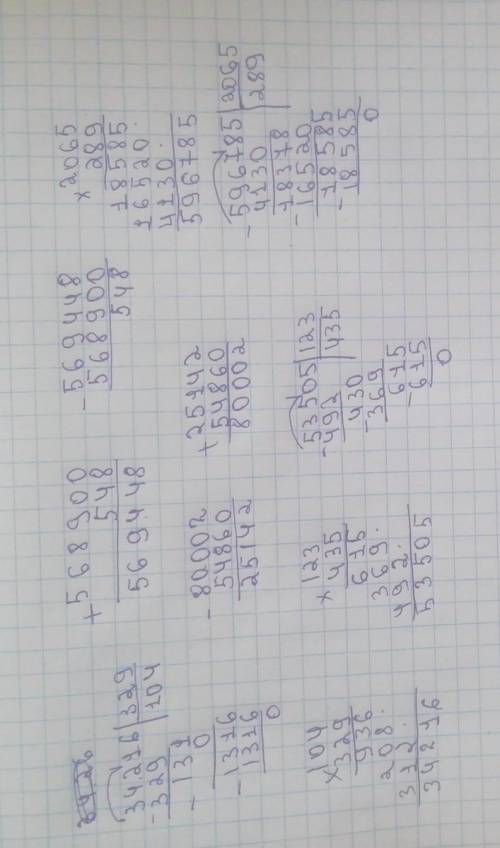 34216 | 329
- 329 | 104
131
- 0
1316
- 1316
0
+ 568900
548
569448
- 569448
568900
548
× 2065
289
18585
16520.
4130.
596785
- 80002
54860
25142
+ 25142
54860
80002
596785 | 2065
- 4130 | 289
18378
- 16520
18585
- 18585
0
104
× 329
936
208.
312.
34216
123
× 435
615
369.
492.
53505
53505 | 123
- 492 | 435
430
- 369
615
- 615
0